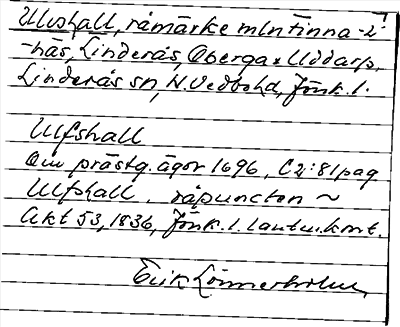 Ulvshall, råmärke mln Finna-
-näs, Linderås, Öberga o Uddarp,
Linderås sn, N. Vedbohd, Jönk. l.
Ulfshall
Om prästg. ägor 1696, C2:81 pag
Ulfshall. råpuncten ~
Akt 53, 1836, Jönk. l. lantm.kont.
Erik Lönnerholm